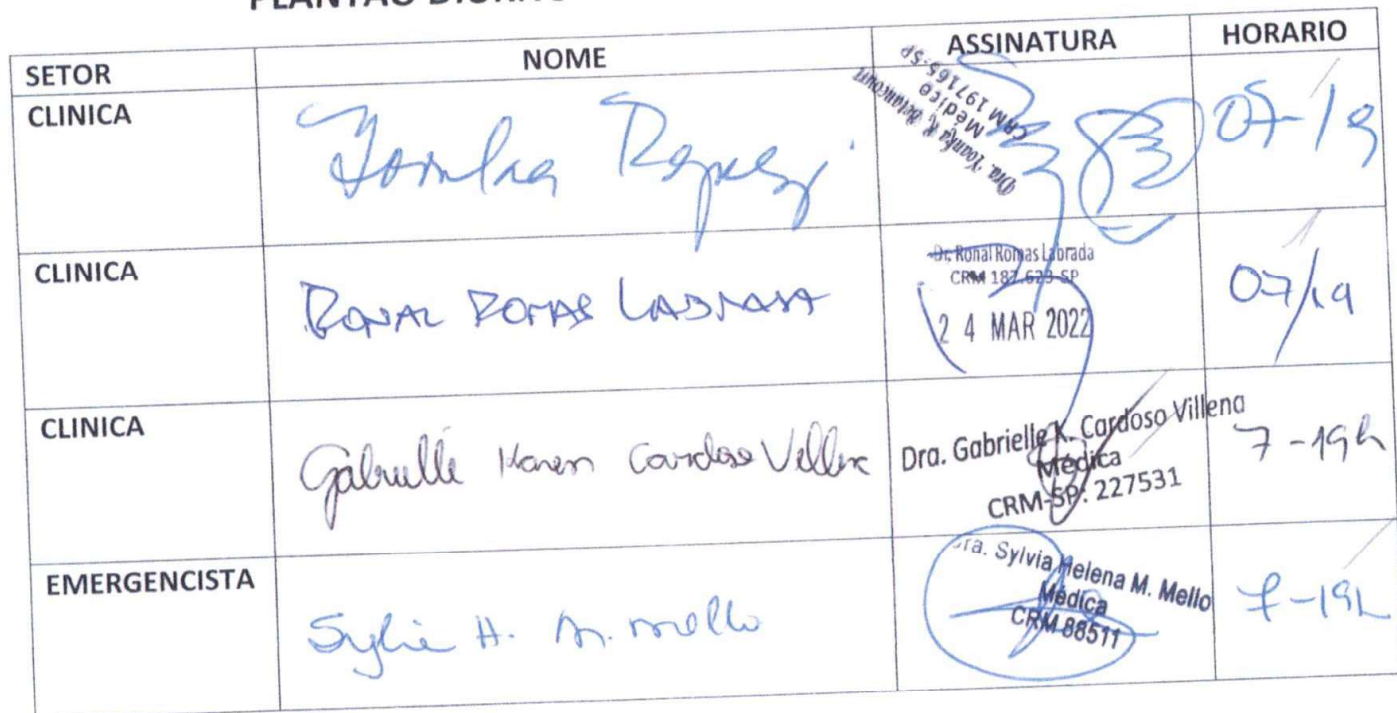 SETOR NOME ASSINATURA HORARIO
CLINICA 07-19
Dra. Yoanka R. Betancourt
Médica
CRM 197165-SP
CLINICA RONAL ROMAS LABRADA 07/19
Dr. Ronal Romas Labrada
CRM 187.623-SP
2 4 MAR 2022
CLINICA Gabrielle Karen Cardoso Villena 7-19h
Dra. Gabrielle K. Cardoso Villena
Médica
CRM-SP: 227531
EMERGENCISTA Sylvia H. M. Mello 7-19h
Dra. Sylvia Helena M. Mello
Médica
CRM 88511